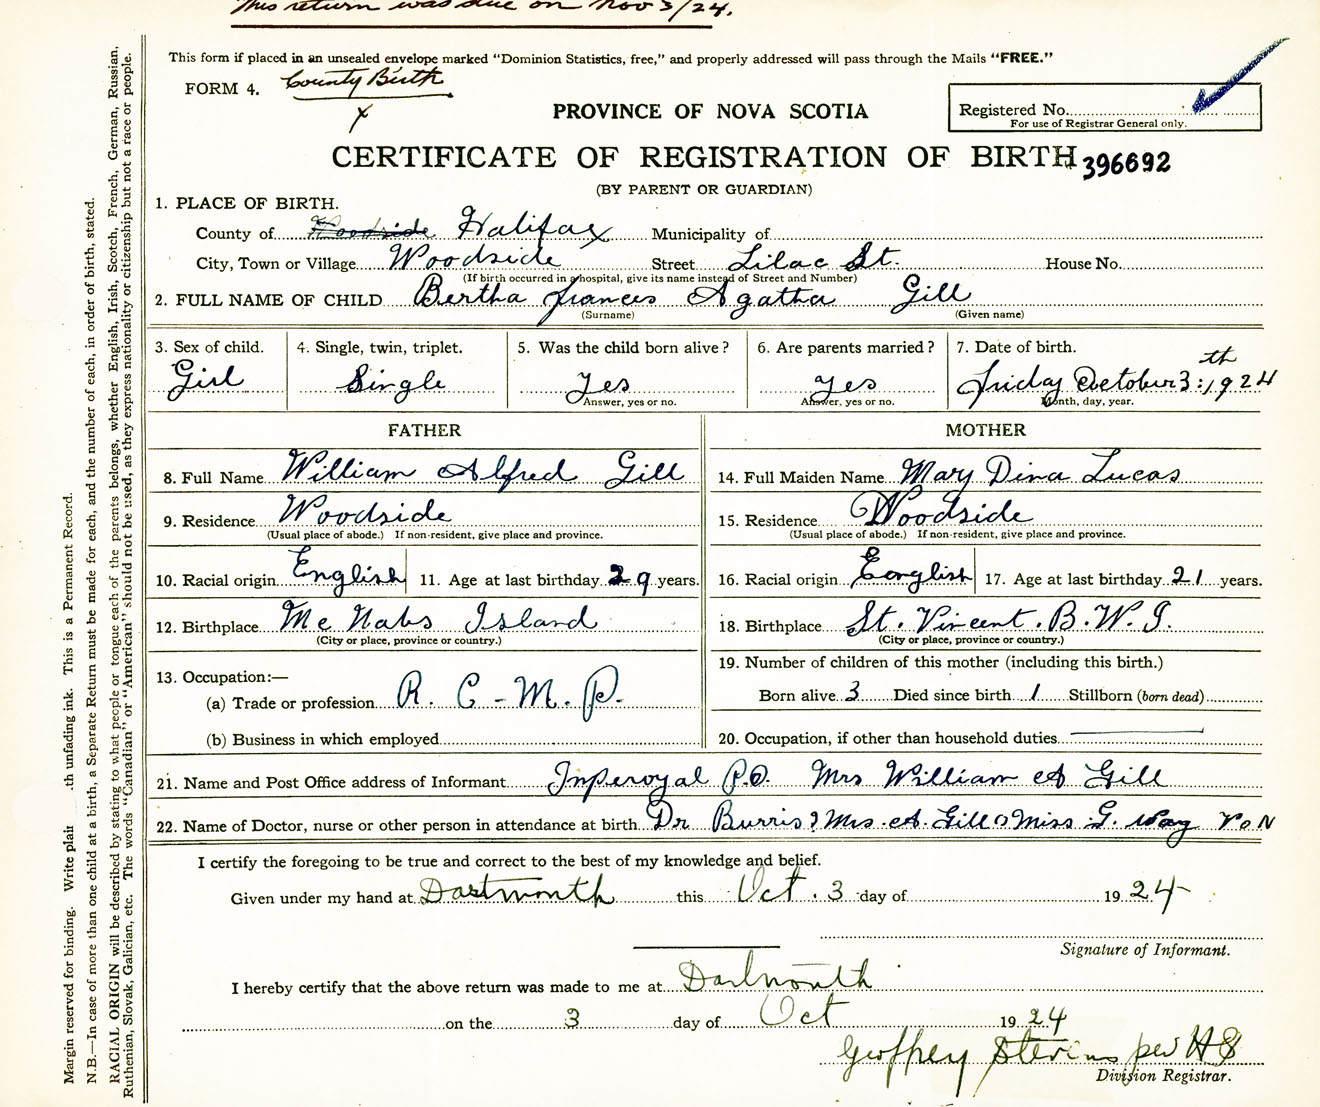 This return was due on Nov 3/24.
This form if placed in an unsealed envelope marked "Dominion Statistics, free," and properly addressed will pass through the Mails "FREE."
FORM 4. County Birth
x
PROVINCE OF NOVA SCOTIA
Registered No.
For use of Registrar General only.
CERTIFICATE OF REGISTRATION OF BIRTH 396692
(BY PARENT OR GUARDIAN)
1. PLACE OF BIRTH.
County of Woodside Halifax Municipality of
City, Town or Village Woodside Street Lilac St. House No.
(If birth occurred in a hospital, give its name instead of Street and Number)
2. FULL NAME OF CHILD Bertha Frances Agatha Gill
(Surname) (Given name)
3. Sex of child. 4. Single, twin, triplet. 5. Was the child born alive? 6. Are parents married? 7. Date of birth.
Girl Single Yes Yes Friday October 3th 1924
Answer, yes or no. Answer, yes or no. Month, day, year.
FATHER MOTHER
8. Full Name William Alfred Gill 14. Full Maiden Name Mary Dina Lucas
9. Residence Woodside 15. Residence Woodside
(Usual place of abode.) If non-resident, give place and province. (Usual place of abode.) If non-resident, give place and province.
10. Racial origin English 11. Age at last birthday 29 years. 16. Racial origin English 17. Age at last birthday 21 years.
12. Birthplace Mc Nabs Island 18. Birthplace St. Vincent. B. W. I.
(City or place, province or country.) (City or place, province or country.)
19. Number of children of this mother (including this birth.)
13. Occupation:—
(a) Trade or profession R. C - M. P. Born alive 3 Died since birth 1 Stillborn (born dead)
(b) Business in which employed 20. Occupation, if other than household duties
21. Name and Post Office address of Informant Imperoyal P.O. Mrs William A Gill
22. Name of Doctor, nurse or other person in attendance at birth Dr Burris Mrs. A. Gill Miss G. Way V o N
I certify the foregoing to be true and correct to the best of my knowledge and belief.
Given under my hand at Dartmouth this Oct. 3 day of 19 24
Signature of Informant.
I hereby certify that the above return was made to me at Dartmouth
on the 3 day of Oct 19 24
Geoffrey Stevens per HS
Division Registrar.
Margin reserved for binding. Write plain .th unfading ink. This is a Permanent Record.
N.B.—In case of more than one child at a birth, a Separate Return must be made for each, and the number of each, in order of birth, stated.
RACIAL ORIGIN will be described by stating to what people or tongue each of the parents belongs, whether English, Irish, Scotch, French, German, Russian,
Ruthenian, Slovak, Galician, etc. The words "Canadian" or "American" should not be used, as they express nationality or citizenship but not a race or people.